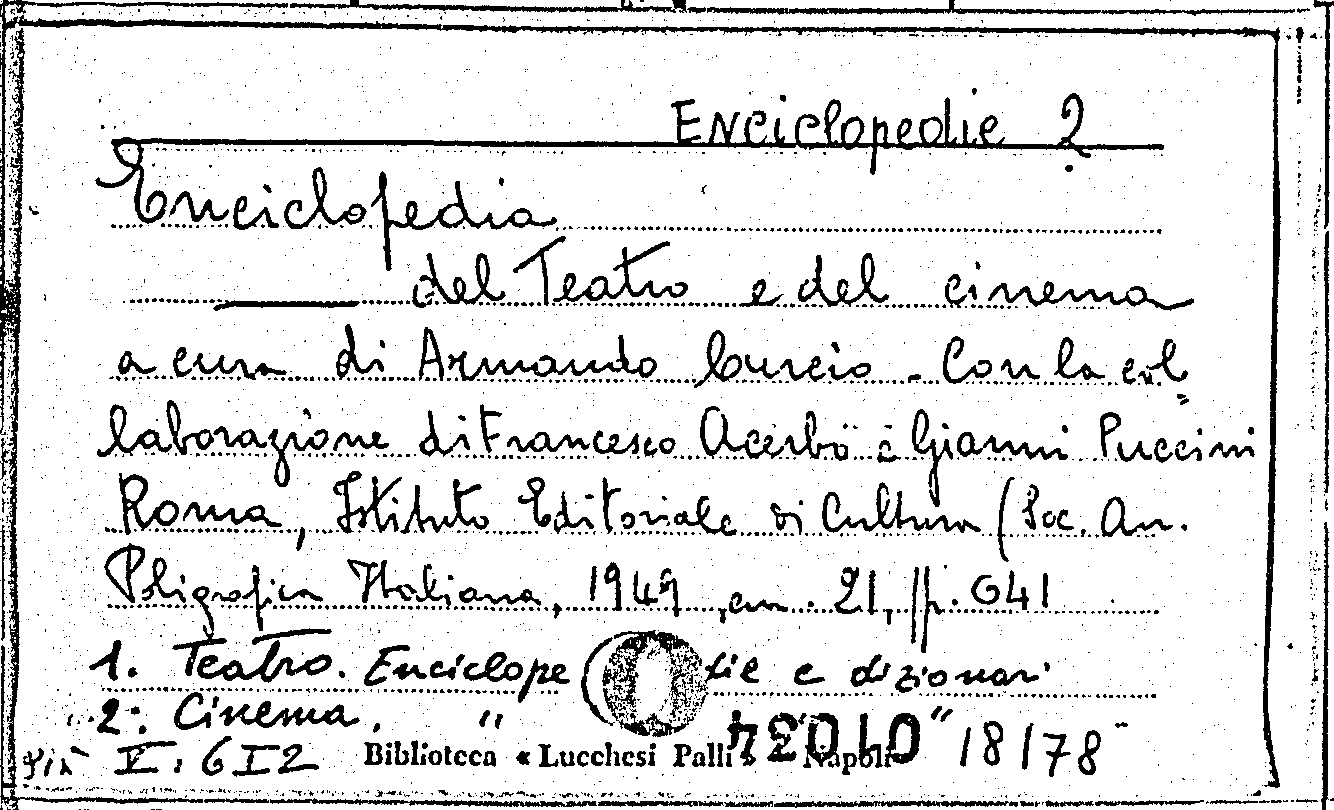 Enciclopedie 2
Enciclopedia
del Teatro e del cinema
a cura di Armando Curcio. Con la col
laborazione di Francesco Acerbo e Gianni Puccini
Roma, Istituto Editoriale di Cultura (Soc. An.
Poligrafica Italiana, 1949, cm. 21, pp. 641
1. Teatro. Enciclope die e dizionari
2. Cinema. " "
V. 6 I 2 Biblioteca « Lucchesi Palli » - Napoli 18178